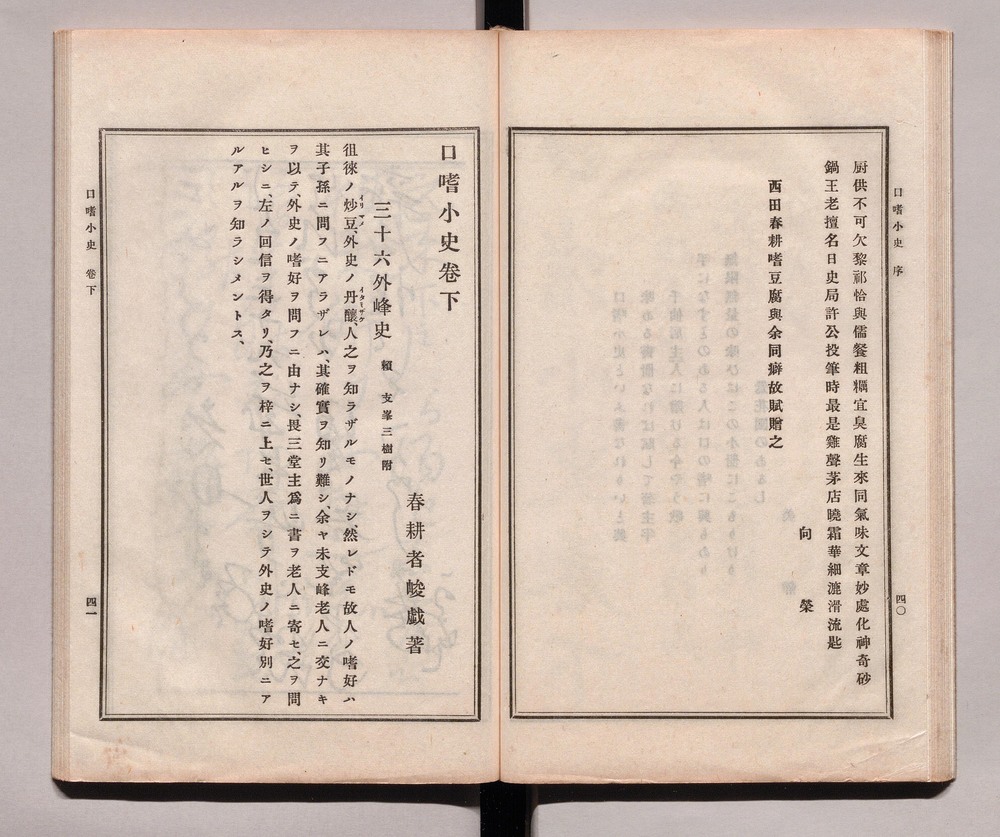 口嗜小史 序
四〇
厨供不可欠黎祁恰與儒餐粗糲宜臭腐生來同氣味文章妙處化神奇砂
鍋王老擅名日史局許公投筆時最是雞聲茅店曉霜華細漉滑流匙
向 榮
西田春耕嗜豆腐與余同癖故賦贈之
口嗜小史卷下
春耕者峻戯著
三十六外峰史 賴 支峯三樹附
徂徠ノ炒豆、外史ノ丹釀、人之ヲ知ラザルモノナシ、然レドモ故人ノ嗜好ハ
其子孫ニ問フニアラザレハ、其確實ヲ知リ難シ、余ヤ未支峰老人ニ交ナキ
ヲ以テ、外史ノ嗜好ヲ問フニ由ナシ、畏三堂主爲ニ書ヲ老人ニ寄セ、之ヲ問
ヒシニ、左ノ回信ヲ得タリ、乃之ヲ梓ニ上セ、世人ヲシテ外史ノ嗜好別ニア
ルアルヲ知ラシメントス、
口嗜小史 卷下
四一